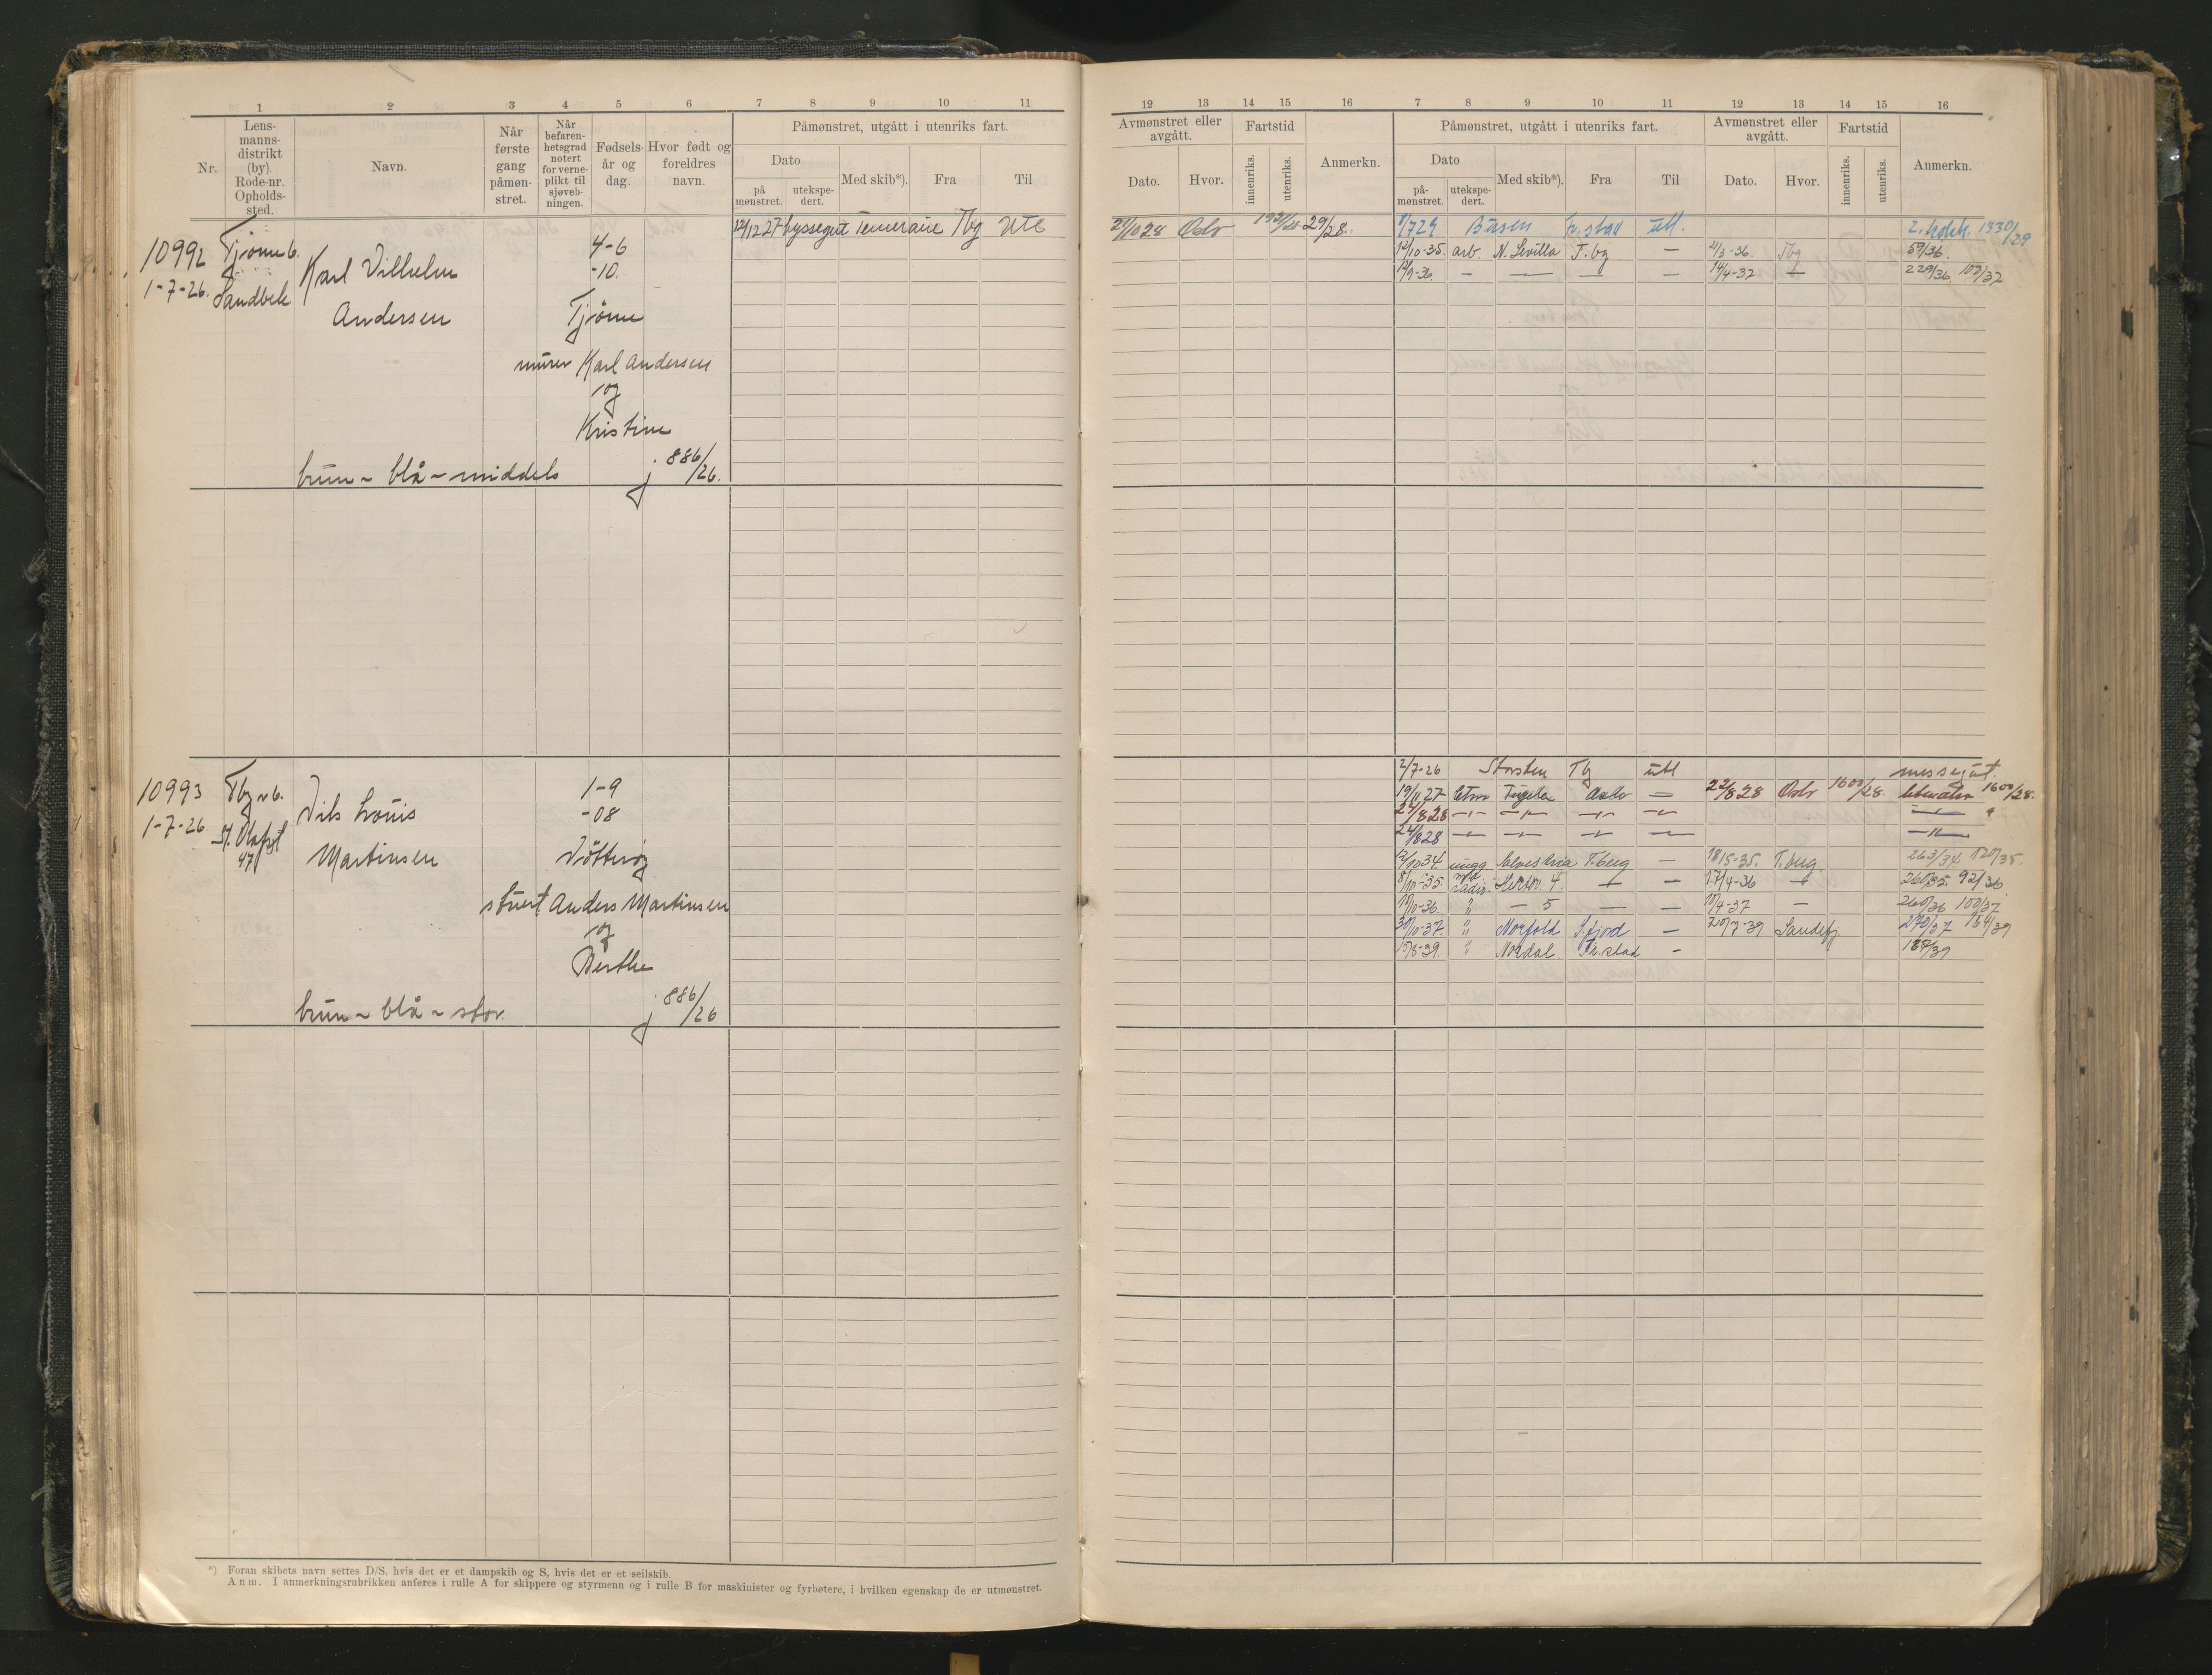 1 2 3 4 5 6 7 8 9 10 11
Nr.
Lens-
manns-
distrikt
(by).
Rode-nr.
Opholds-
sted.
Navn.
Når
første
gang
påmøn-
stret.
Når
befaren-
hetsgrad
notert
for verne-
plikt til
sjøveb-
ningen.
Fødsels-
år og
dag.
Hvor født og
foreldres
navn.
Påmønstret, utgått i utenriks fart.
Dato
på
mønstret.
utekspe-
dert.
Med skib*).
Fra
Til
10992 Tjøme 6.
1-7-26. Sandbek
Karl Vilhelm
Andersen
4-6
-10.
Tjøme
murer Karl Andersen
og
Kristine
brun - blå - middels j 886/26.
12/12 27 byssegut Temeraire Tbg Utl
10993 Tbg
1-7-26 St. Olafsgt
47
Nils Louis
Martinsen
1-9
-08
Nøtterøy
stuert Anders Martinsen
og
Berthe
brun - blå - stor. j 886/26
*) Foran skibets navn settes D/S, hvis det er et dampskib og S, hvis det er et seilskib.
Anm. I anmerkningsrubrikken anføres i rulle A for skippere og styrmenn og i rulle B for maskinister og fyrbøtere, i hvilken egenskap de er utmønstret.
12 13 14 15 16 7 8 9 10 11 12 13 14 15 16
Avmønstret eller
avgått.
Dato.
Hvor.
Fartstid
innenriks.
utenriks.
Anmerkn.
Påmønstret, utgått i utenriks fart.
Dato
på-
mønstret.
utekspe-
dert.
Med skib*).
Fra
Til
Avmønstret eller
avgått.
Dato.
Hvor.
Fartstid
innenriks.
utenriks.
Anmerkn.
Oslo 29/28. Busen Fr.stad utl. 2. kokk 1330/29
12/10-35. arb. N. Sevilla T.bg — 21/3-36. Tbg 59/36.
12/9-36. — — — — 14/4-37 — 229/36. 103/37
2/7-26 Storsten Tg utl messegut.
19/11 27 Oslo 22/8 28 Oslo 1600/28. 1600/28.
24/8 28
12/10 34 T.berg — 18/5-35. T.berg 263/34 120/35.
8/10-35. radio. — — 17/4-36 — 260/35. 92/36
10/10-36. " — 5 — — 10/4-37 — 260/36 100/37
30/10-37. " Norfold S.fjord — 20/7-39 Sandefj. 270/37 164/39
" Nordal Fr.stad — 187/39